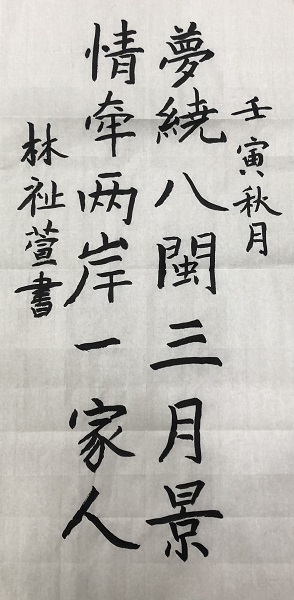 壬寅秋月
夢繞八閩三月景
情牽两岸一家人
林祉萱書